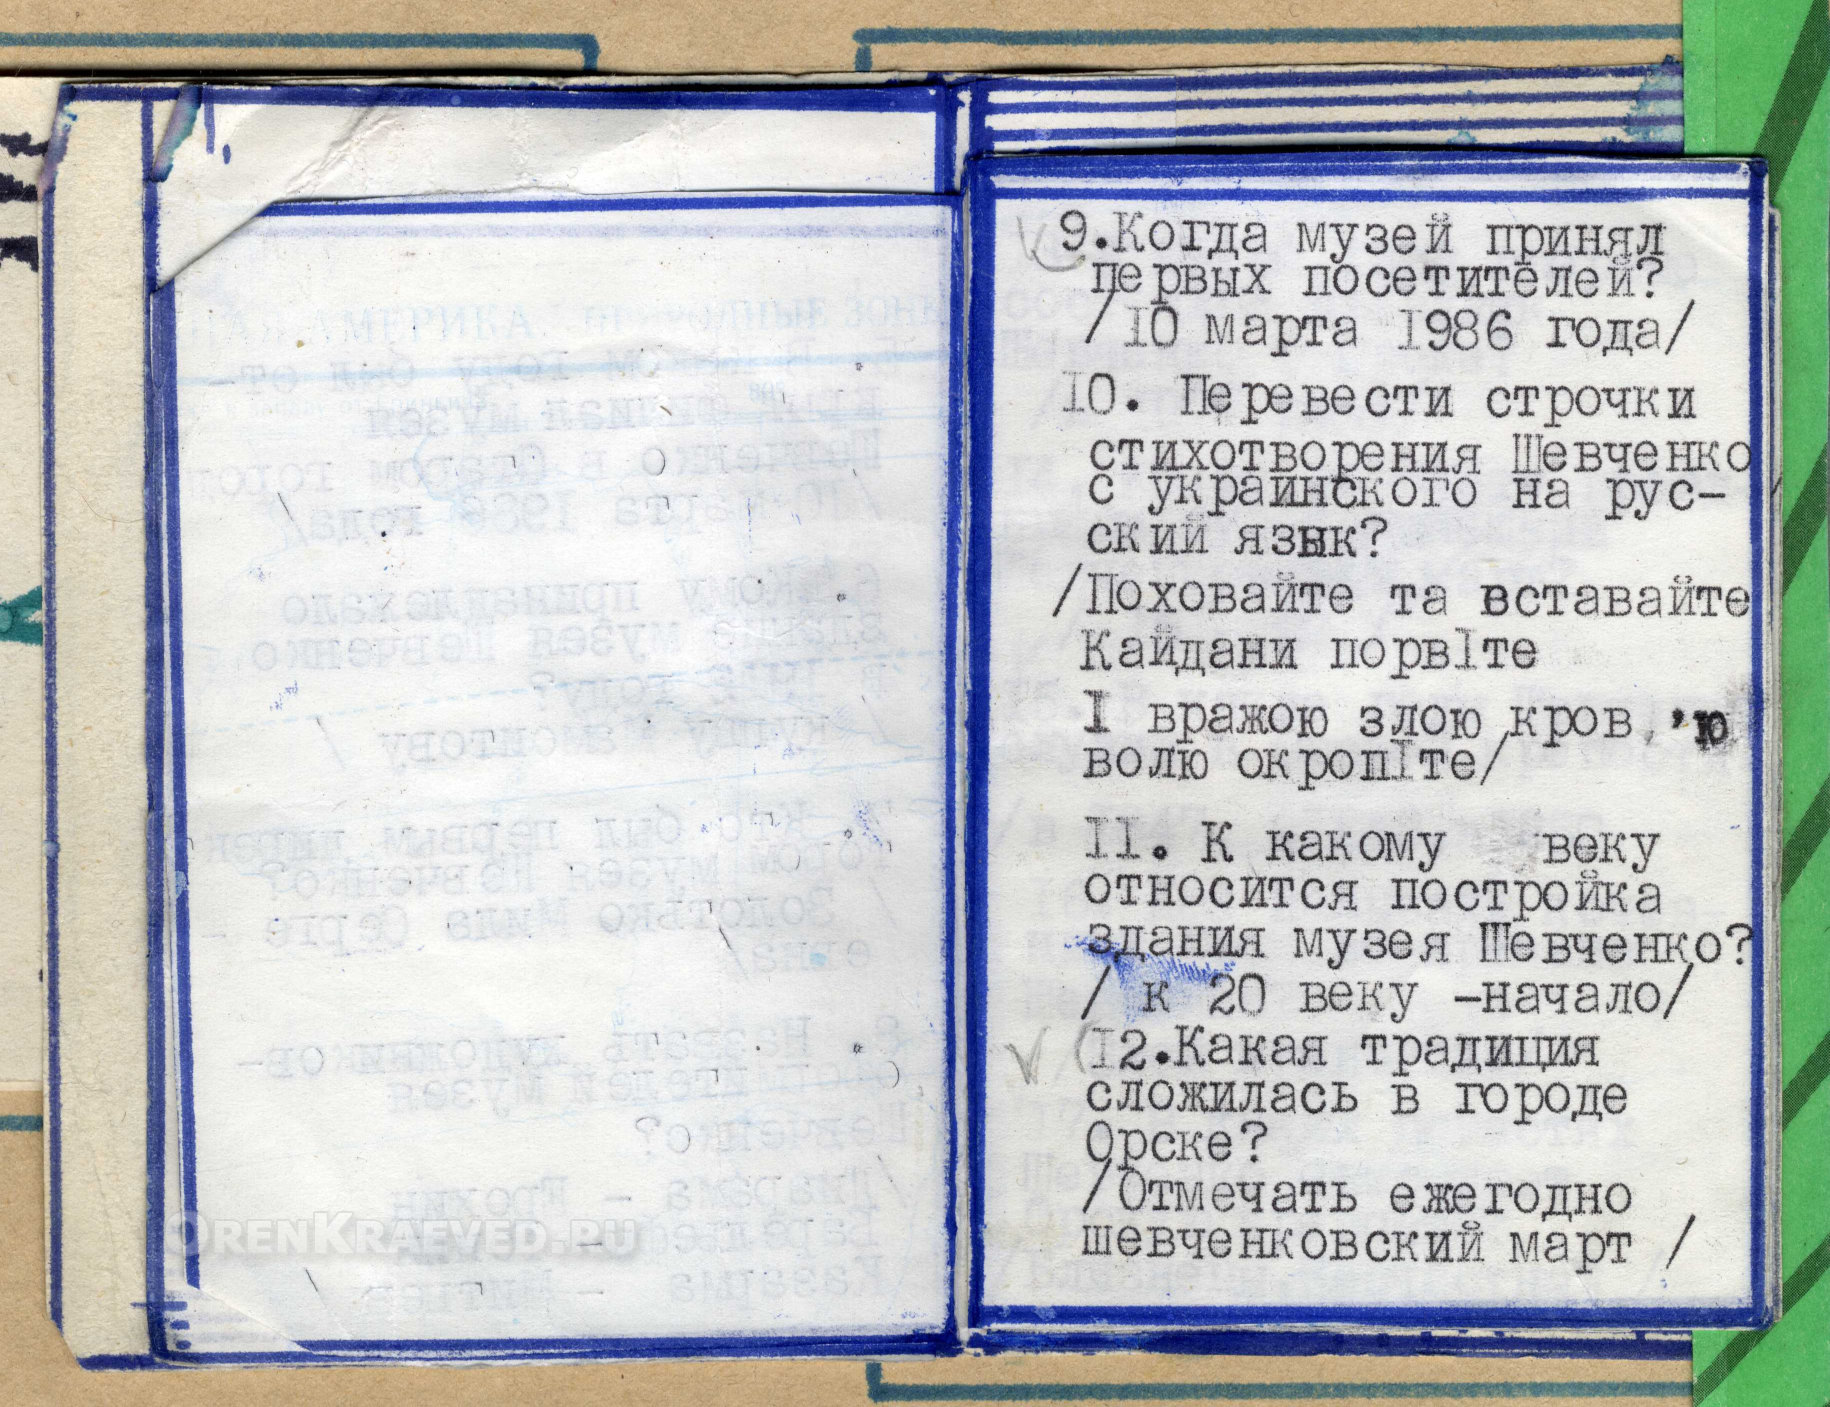 9.Когда музей принял
первых посетителей?
/10 марта 1986 года/
10. Перевести строчки
стихотворения Шевченко
с украинского на рус-
ский язык?
/Поховайте та вставайте
Кайдани порвIте
I вражою злою кров,'ю
волю окропIте/
II. К какому веку
относится постройка
здания музея Шевченко?
/ к 20 веку -начало/
I2.Какая традиция
сложилась в городе
Орске?
/Отмечать ежегодно
шевченковский март /
ORENKRAEVED.РU